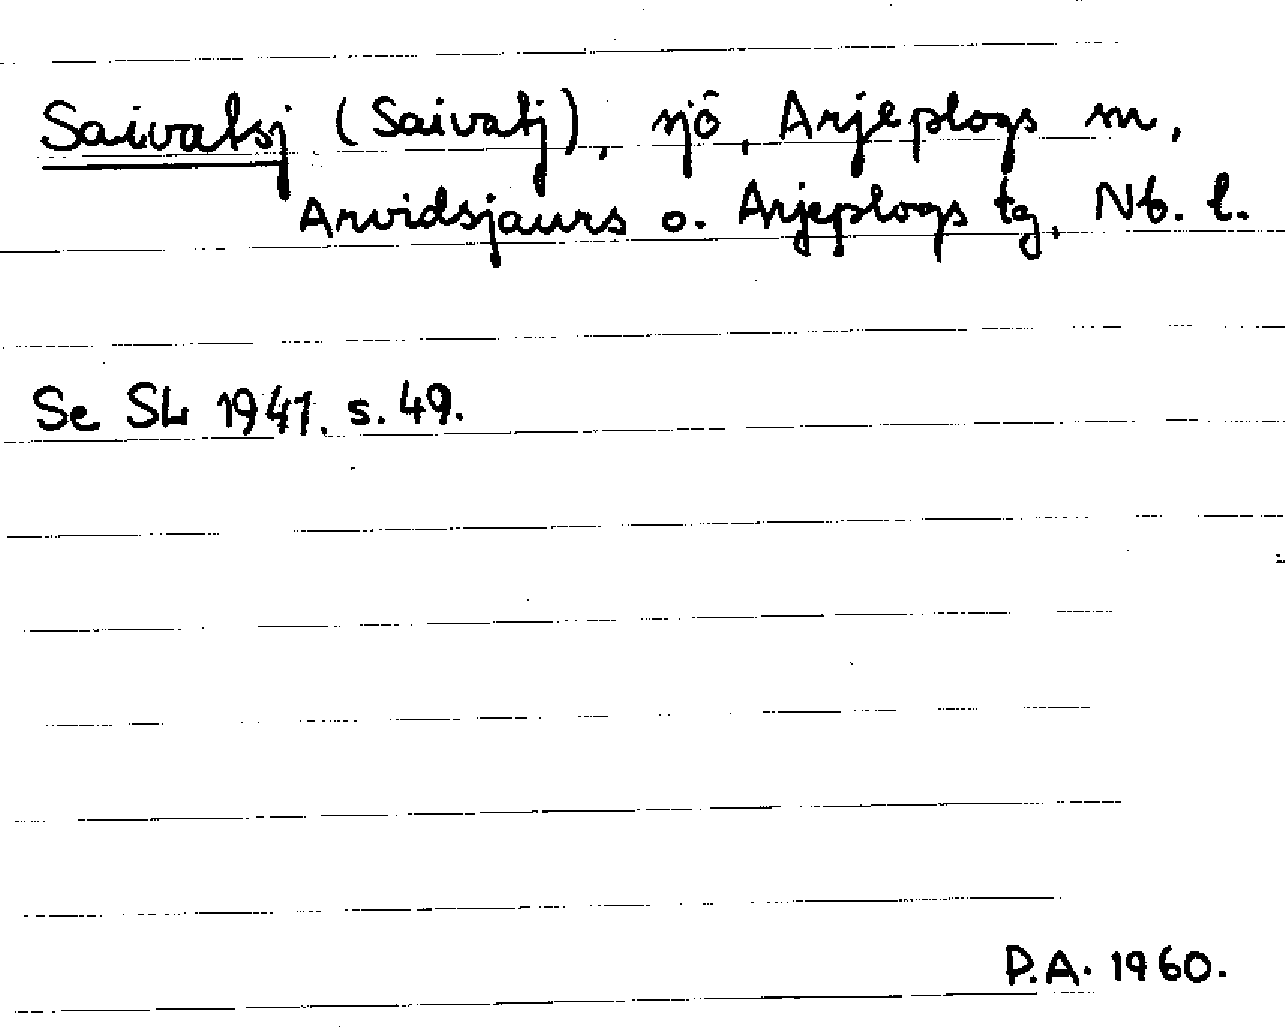 Saivatsj (Saivatj), sjö, Arjeplogs sn,
Arvidsjaurs o. Arjeplogs tg, Nb. l.
Se SL 1941. s. 49.
P.A. 1960.